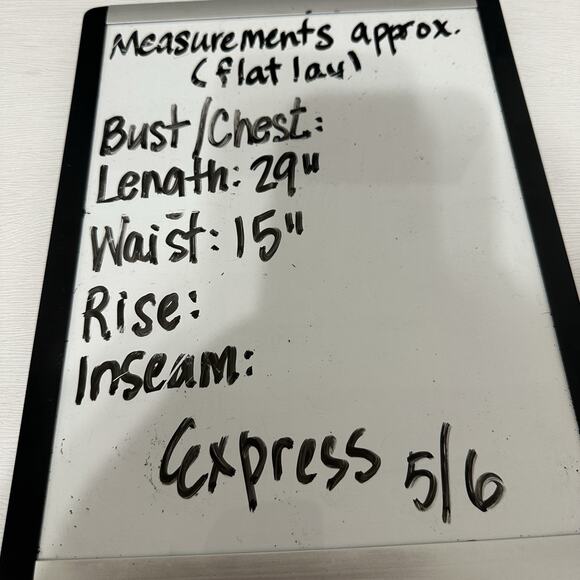 Measurements approx.
(flat lay)
Bust/Chest:
Length: 29"
Waist: 15"
Rise:
Inseam:
Express 5/6